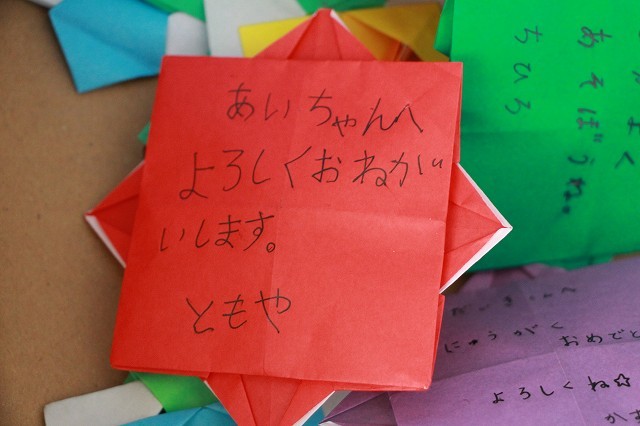 あいちゃんへ
よろしくおねがい
いします。
ともや
よく
あそぼうね。
ちひろ
にゅうがく
おめでと
よろしくね☆